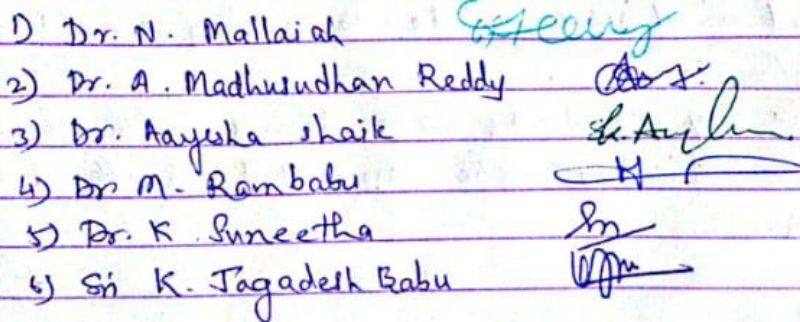 1) Dr. N. Mallaiah
2) Dr. A. Madhusudhan Reddy
3) Dr. Aayesha Shaik
4) Dr M. Rambabu
5) Dr. K Suneetha
6) Sri K. Jagadesh Babu